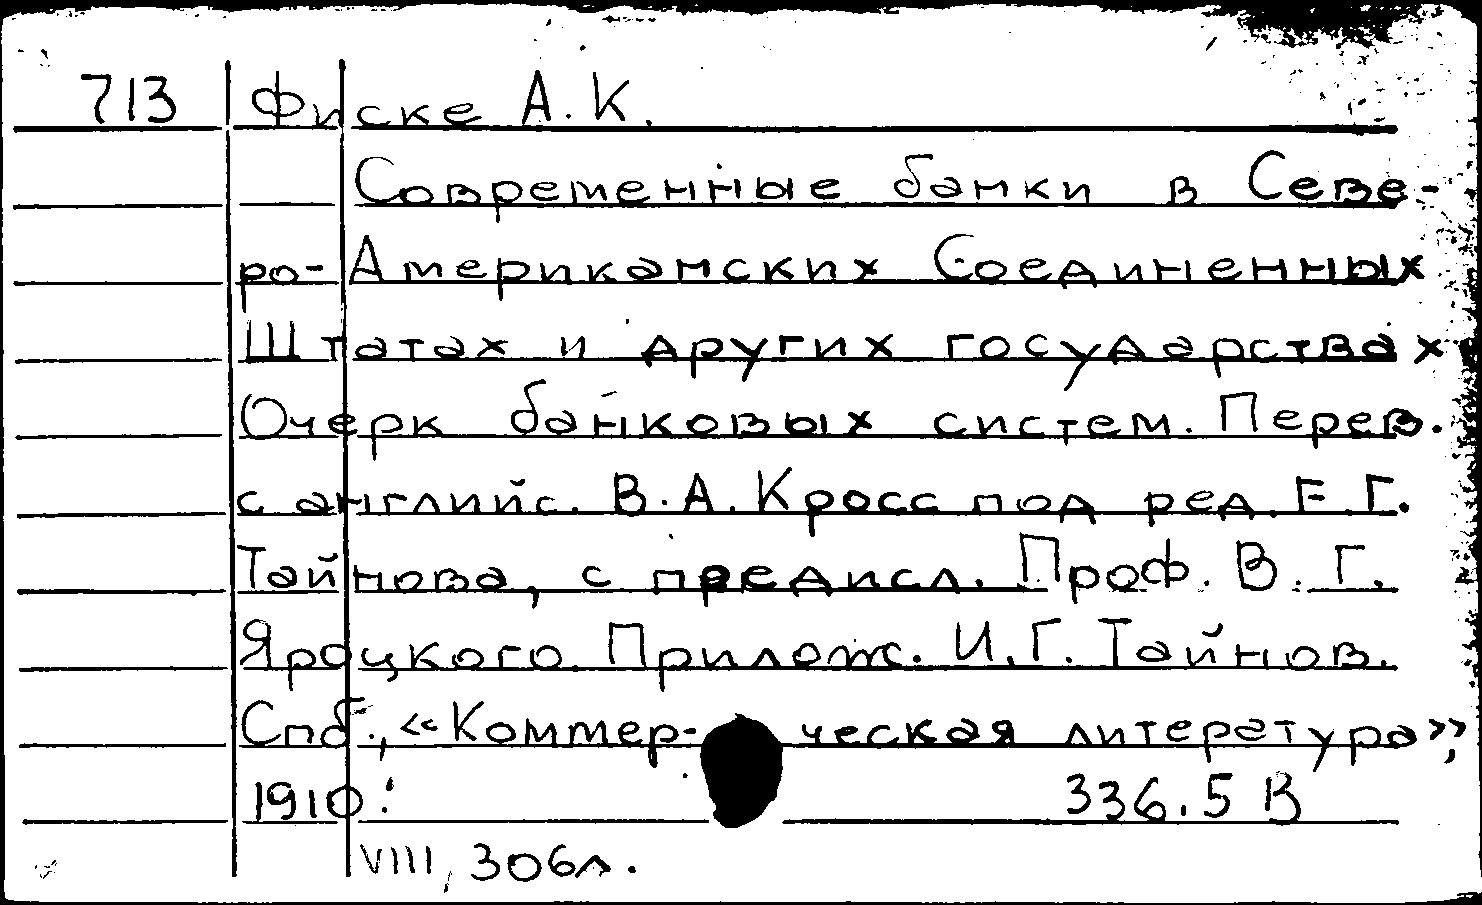 713 Фиске А.К.
Современные банки в Севе-
ро-Американских Соединенных
Штатах и других государствах
Очерк банковых систем. Перев.
с английс. В.А.Кросс под ред. Е.Г.
Тайнова, с предисл. Проф. В.Г.
Яроцкого. Прилож. И.Г. Тайнов.
Спб., «Коммер- ческая литература»,
1910. 336.5 В
VIII, 306л.